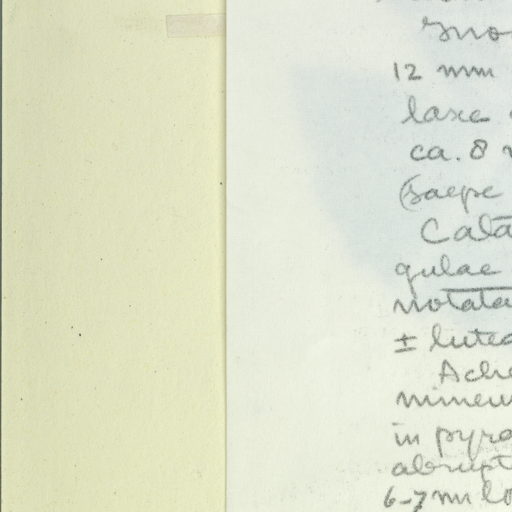 12 mm
laxe
ca. 8
(saepe
Cala
gulae
notata
± lutea
Ache
numeru
in pyra
abrupt
6-7 mm lo